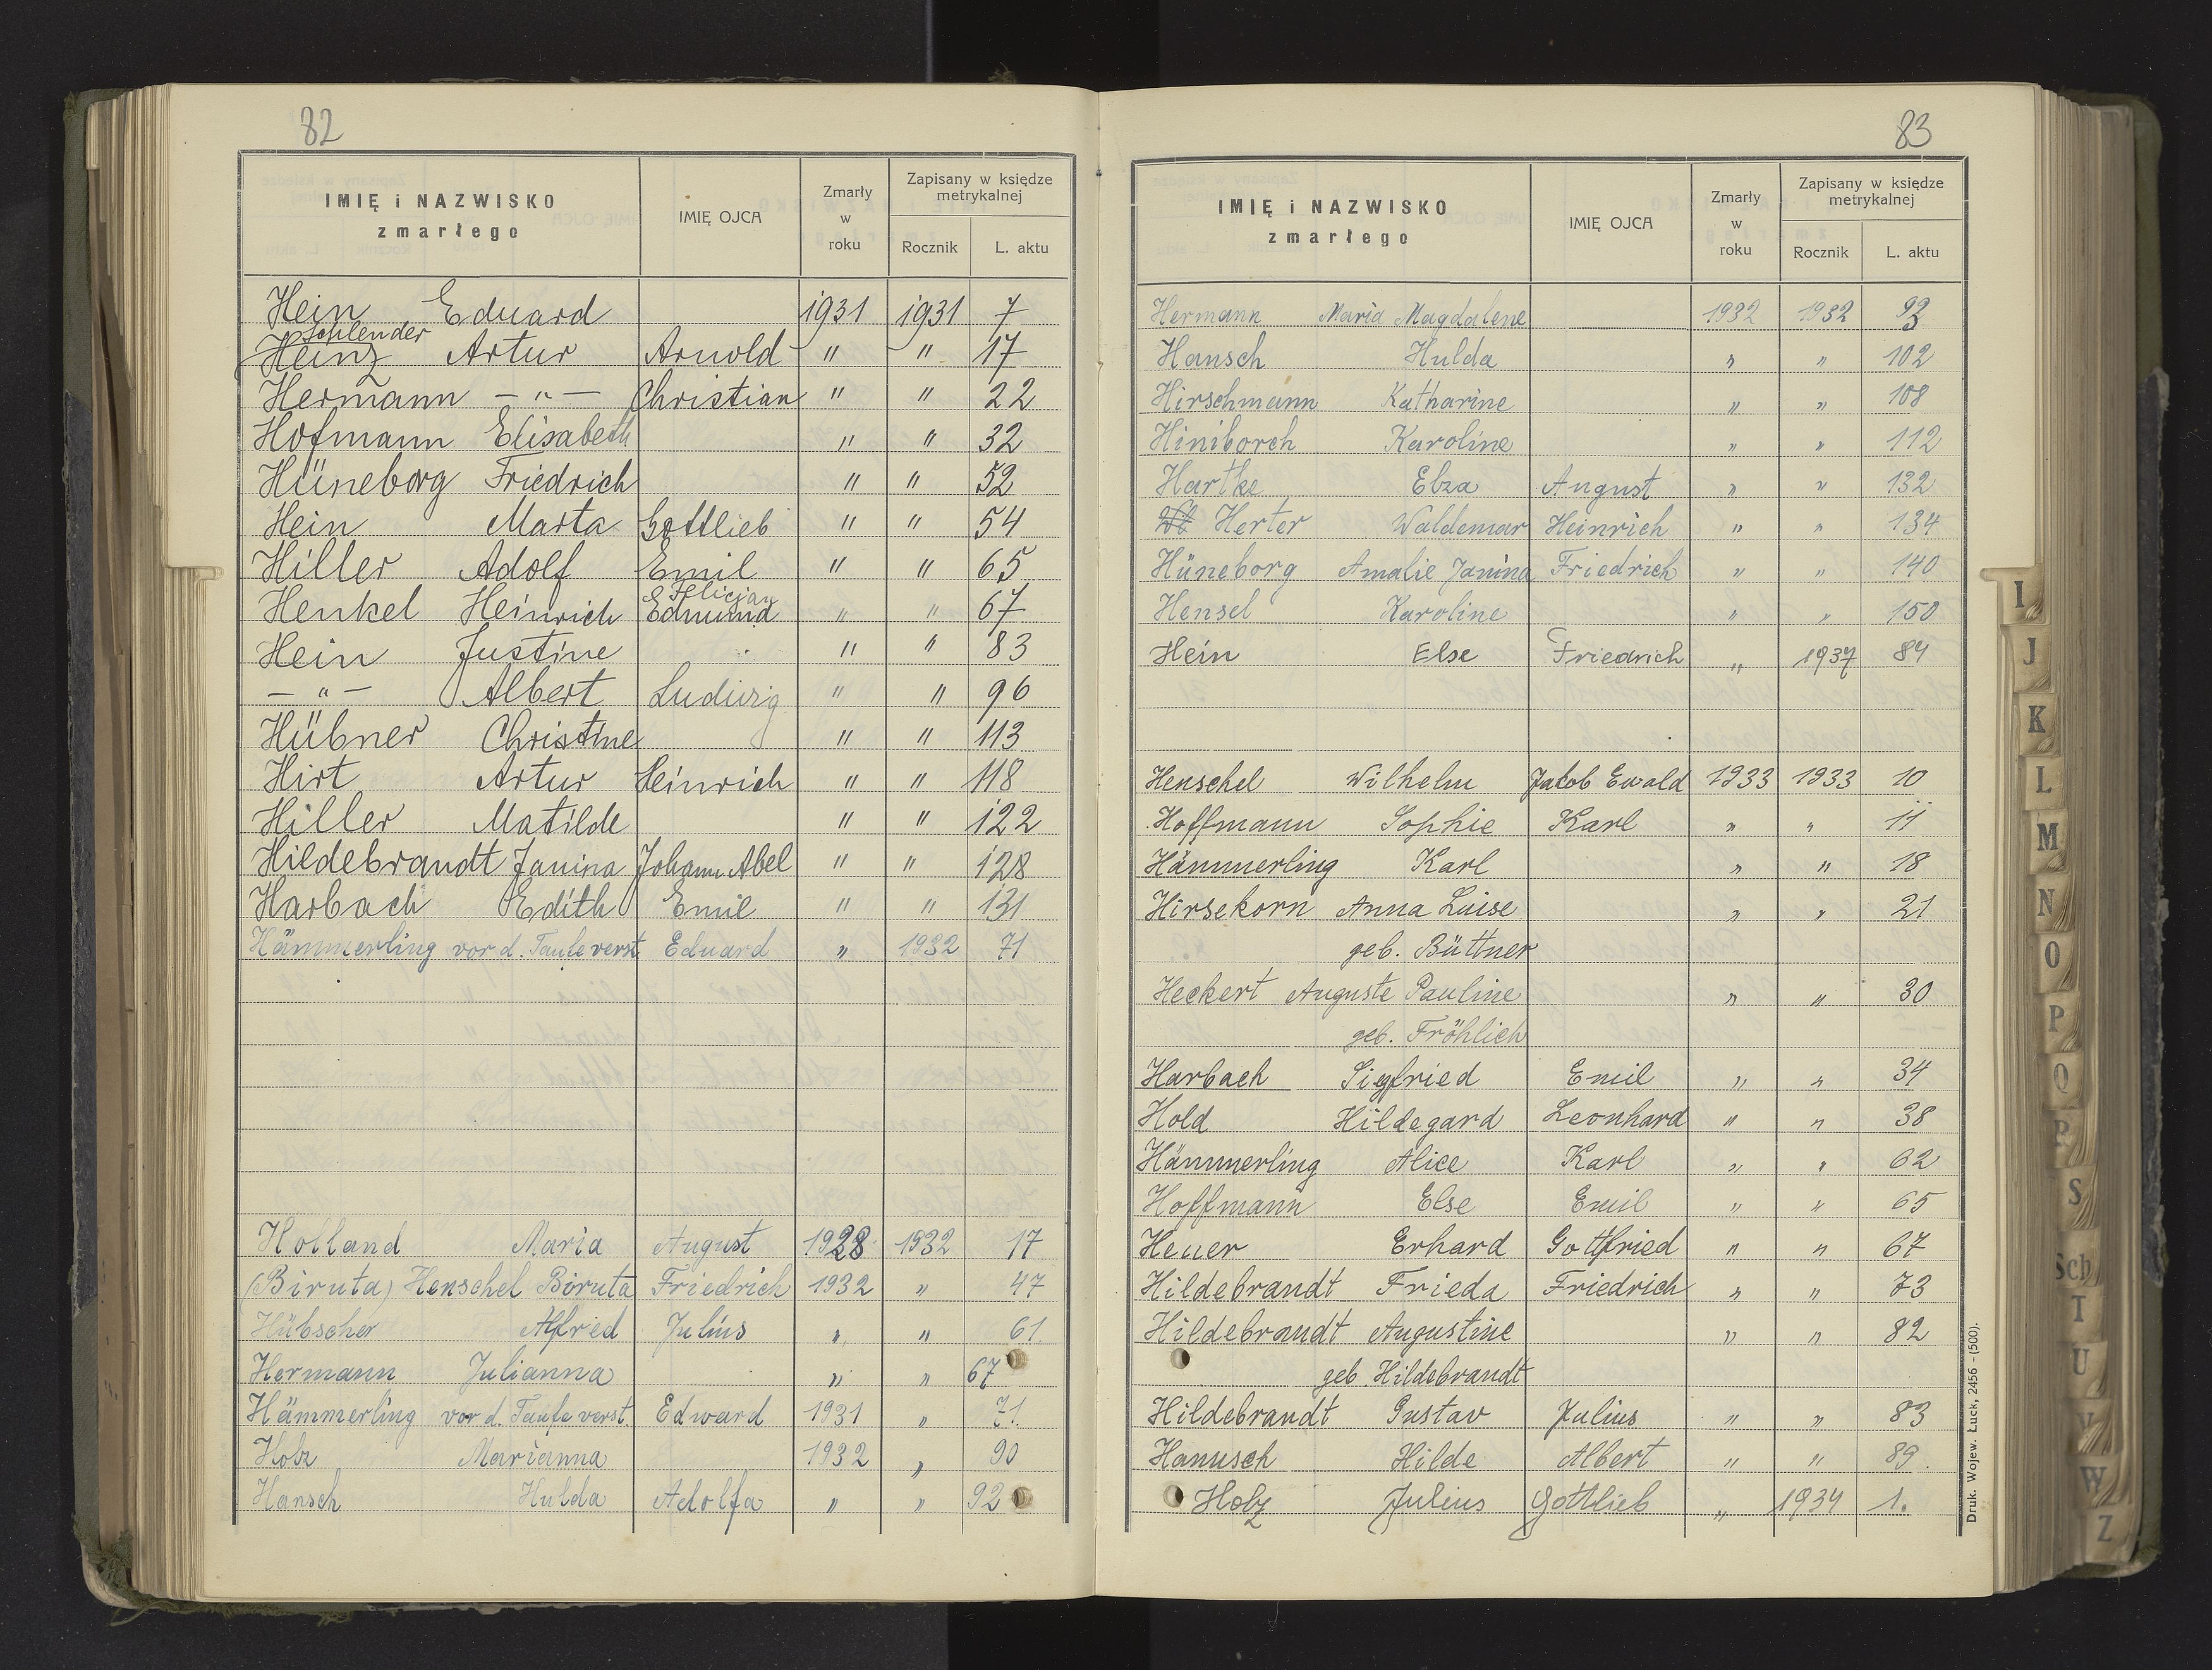 82
IMIĘ i NAZWISKO zmarłego | IMIĘ OJCA | Zmarły w roku | Zapisany w księdze metrykalnej
Rocznik | L. aktu
Hein Eduard 1931 1931 7
Schlender
Heinz Artur Arnold " " 17
Hermann — " — Christian " " 22
Hofmann Elisabeth " " 32
Hüneborg Friedrich " " 52
Hein Marta Gottlieb " " 54
Hiller Adolf Emil " " 65
Felicjan
Henkel Heinrich Edmund " " 67
Hein Justine " " 83
— " — Albert Ludwig " " 96
Hübner Christine " " 113
Hirt Artur Heinrich " " 118
Hiller Matilde " " 122
Hildebrandt Janina Johann Abel " " 128
Harbach Edith Emil " " 131
Hämmerling vor d. Taufe verst. Eduard " 1932 71
Holland Maria August 1928 1932 17
(Biruta) Henschel Biruta Friedrich 1932 " 47
Hübscher Alfried Julius " " 61
Hermann Julianna " " 67
Hämmerling vor d. Taufe verst. Edward 1931 " 71.
Holz Marianna 1932 " 90
Hansch Hulda Adolfa " " 92
83
IMIĘ i NAZWISKO zmarłego | IMIĘ OJCA | Zmarły w roku | Zapisany w księdze metrykalnej
Rocznik | L. aktu
Hermann Maria Magdalene 1932 1932 93
Hansch Hulda " " 102
Hirschmann Katharine " " 108
Hiniborch Karoline " " 112
Hartke Elza August " " 132
Herter Waldemar Heinrich " " 134
Hüneborg Amalie Janina Friedrich " " 140
Hensel Karoline " " 150
Hein Else Friedrich " 1937 84
Henschel Wilhelm Jakob Ewald 1933 1933 10
Hoffmann Sophie Karl " " 11
Hämmerling Karl " " 18
Hirsekorn Anna Luise " " 21
geb. Büttner
Heckert Auguste Pauline " " 30
geb. Fröhlich
Harbach Siegfried Emil " " 34
Hold Hildegard Leonhard " " 38
Hämmerling Alice Karl " " 62
Hoffmann Else Emil " " 65
Heuer Erhard Gottfried " " 67
Hildebrandt Frieda Friedrich " " 73
Hildebrandt Augustine " " 82
geb. Hildebrandt
Hildebrandt Gustav Julius " " 83
Hanusch Hilde Albert " " 89.
Holz Julius Gottlieb " 1934 1.
Druk. Wojew. Łuck, 2456 - (500).
I
J
K
L
M
N
O
P
Q
R
S
Sch
T
U
V
W
Z